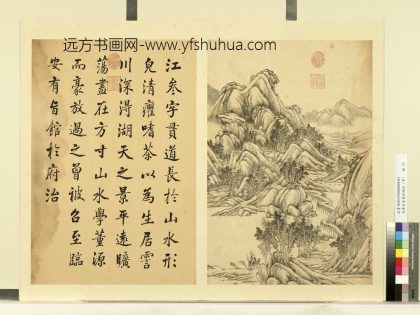 远方书画网--www.yfshuhua.com
江参字貫道長於山水形
皃清癯嗜茶以為生居霅
川深得湖天之景平遠曠
蕩盡在方寸山水學董源
而豪放過之曾被召至臨
安有旨館於府治